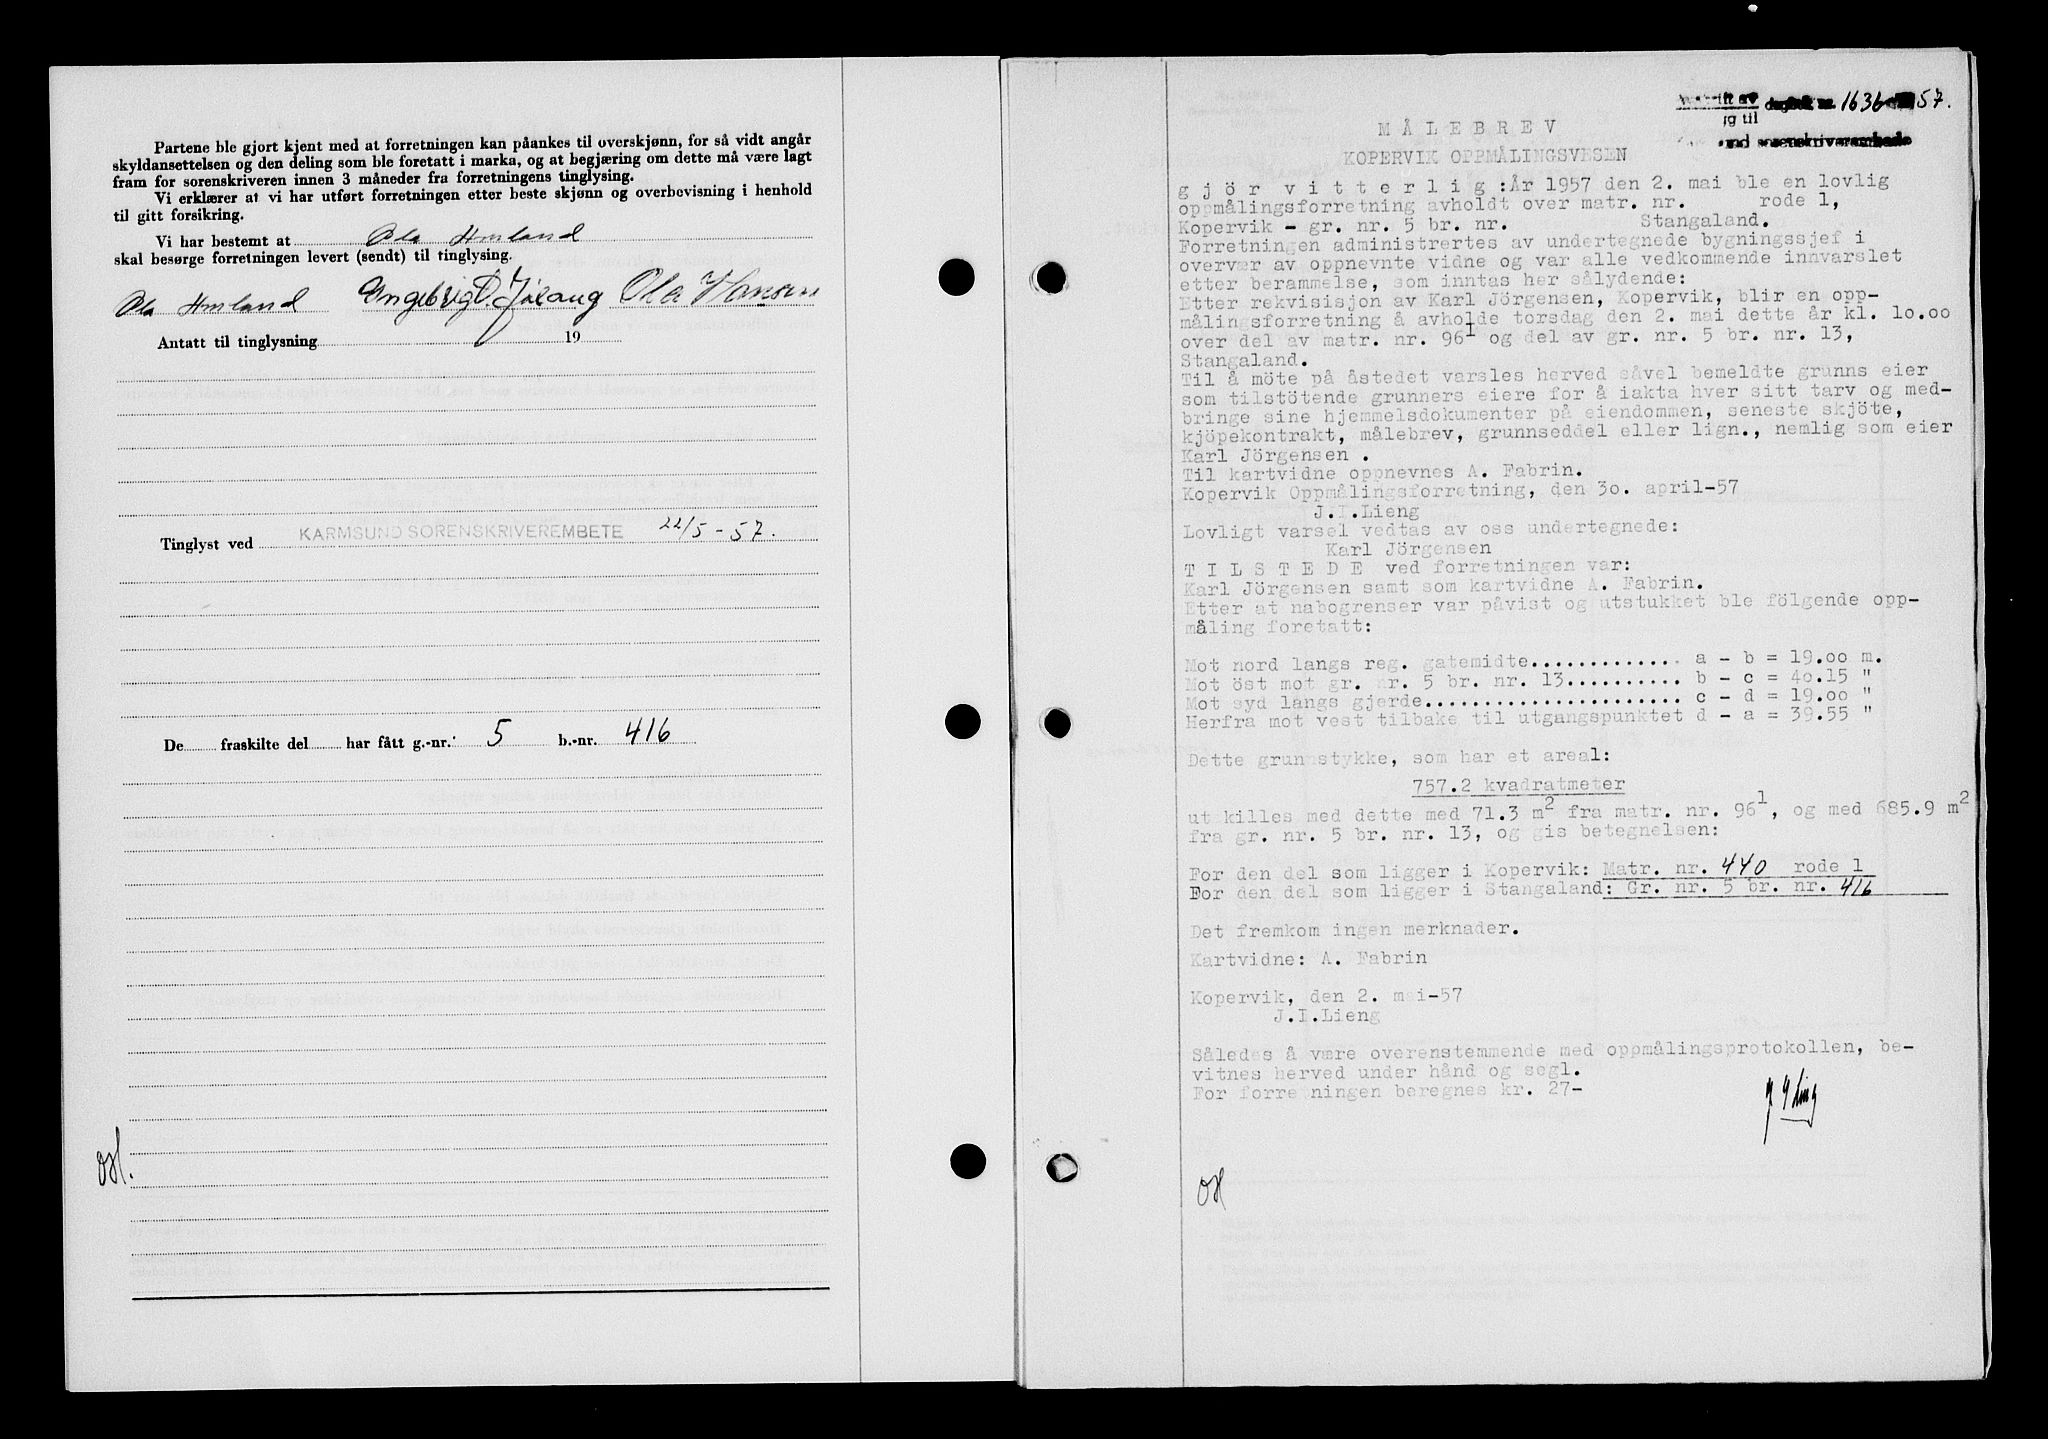 Partene ble gjort kjent med at forretningen kan påankes til overskjønn, for så vidt angår
skyldansettelsen og den deling som ble foretatt i marka, og at begjæring om dette må være lagt
fram for sorenskriveren innen 3 måneder fra forretningens tinglysing.
Vi erklærer at vi har utført forretningen etter beste skjønn og overbevisning i henhold
til gitt forsikring.
Vi har bestemt at Ola Hmland
skal besørge forretningen levert (sendt) til tinglysing.
Ola Hmland Engebrigt D. Jølang Ola Hansen
Antatt til tinglysning 19
Tinglyst ved KARMSUND SORENSKRIVEREMBETE 22/5-57.
De fraskilte del har fått g.-nr. 5 b.-nr. 416
OH.
dagbok nr. 1636 57.
og til
sund sorenskriverembede
MÅLEBREV
KOPERVIK OPPMÅLINGSVESEN
gjör vitterlig: År 1957 den 2. mai ble en lovlig
oppmålingsforretning avholdt over matr. nr. rode 1,
Kopervik - gr. nr. 5 br. nr. Stangaland.
Forretningen administrertes av undertegnede bygningssjef i
overvær av oppnevnte vidne og var alle vedkommende innvarslet
etter berammelse, som inntas her sålydende:
Etter rekvisisjon av Karl Jörgensen, Kopervik, blir en opp-
målingsforretning å avholde torsdag den 2. mai dette år kl. 10.00
over del av matr. nr. 96¹ og del av gr. nr. 5 br. nr. 13,
Stangaland.
Til å möte på åstedet varsles herved såvel bemeldte grunns eier
som tilstötende grunners eiere for å iakta hver sitt tarv og med-
bringe sine hjemmelsdokumenter på eiendommen, seneste skjöte,
kjöpekontrakt, målebrev, grunnseddel eller lign., nemlig som eier
Karl Jörgensen .
Til kartvidne oppnevnes A. Fabrin.
Kopervik Oppmålingsforretning, den 30. april-57
J.I.Lieng
Lovligt varsel vedtas av oss undertegnede:
Karl Jörgensen
TILSTEDE ved forretningen var:
Karl Jörgensen samt som kartvidne A. Fabrin.
Etter at nabogrenser var påvist og utstukket ble fölgende opp-
måling foretatt:
Mot nord langs reg. gatemidte.............. a - b = 19.00 m.
Mot öst mot gr. nr. 5 br. nr. 13.......... b - c = 40.15 "
Mot syd langs gjerde....................... c - d = 19.00 "
Herfra mot vest tilbake til utgangspunktet d - a = 39.55 "
Dette grunnstykke, som har et areal:
757.2 kvadratmeter
utskilles med dette med 71.3 m² fra matr. nr. 96¹, og med 685.9 m²
fra gr. nr. 5 br. nr. 13, og gis betegnelsen:
For den del som ligger i Kopervik: Matr. nr. 440 rode 1
For den del som ligger i Stangaland: Gr. nr. 5 br. nr. 416
Det fremkom ingen merknader.
Kartvidne: A. Fabrin
Kopervik, den 2. mai-57
J.I.Lieng
Således å være overenstemmende med oppmålingsprotokollen, be-
vitnes herved under hånd og segl.
For forretningen beregnes kr. 27-
OH